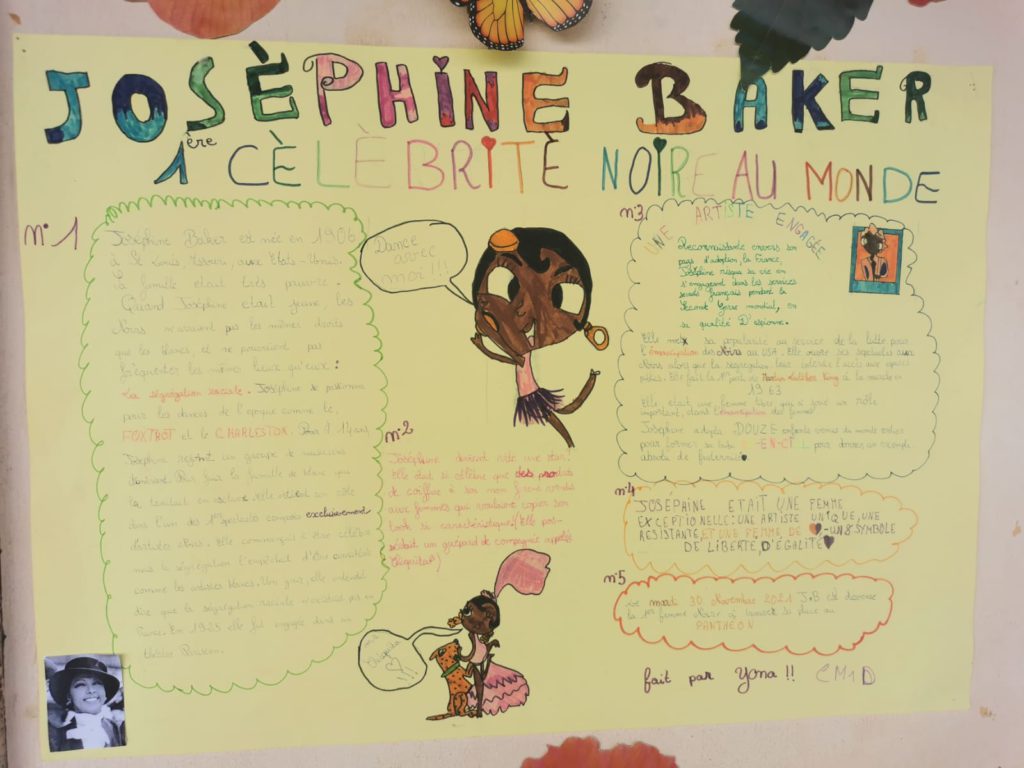 JOSÈPHINE BAKER
1ère CÈLÈBRITÈ NOIRE AU MONDE
n°1
Joséphine Baker est née en 1906
à St Louis, Missouri, aux Etats-Unis.
Sa famille était très pauvre.
Quand Joséphine était jeune les
Noirs n'avaient pas les mêmes droits
que les blancs, et ne pouvaient pas
fréquenter les mêmes lieux qu'eux:
La ségrégation raciste. Joséphine se passionna
pour les dances de l'époque comme le
FOXTROT et le CHARLESTON. Puis à 14 ans
Joséphine rejoint un groupe de musiciens
dans l'un des 1ers spectacles composés exclusivement
d'artistes Noirs. Elle commençait à être célèbre
mais la ségrégation l'empêchait d'être considérée
comme les artistes blancs. Un jour, elle entendit
dire que la ségrégation raciale n'existait pas en
France. En 1925 elle fut engagée dans un
théâtre Parisien.
Dance
avec
moi!!!
n°2
Joséphine devient vite une star!
Elle était si célèbre que des produits
de coiffure à son nom furent vendus
aux femmes qui voulaient copier son
look si caractéristique! (Elle pos-
sédait un guépard de compagnie appelé
Chiquita)
Chiquita
n°3
UNE ARTISTE ENGAGÉE
Reconnaissante envers son
pays d'adoption, la France,
Joséphine risqua sa vie en
s'engageant dans les services
secrets français pendant la
sa qualité D'espionne.
Elle met sa popularité au service de la lutte pour
l'émancipation des Noirs au USA. Elle ouvre ses spectacles aux
Noirs alors que la ségrégation leur interdit l'accès aux espaces
publics. Elle fait la
1963
Elle était une femme libre qui a joué un rôle
important, dans l'émancipation des femmes
Joséphine adopta DOUZE enfants venus du monde entier
pour former sa tribu pour donner un exemple
absolu de fraternité
n°4
JOSÉPHINE ETAIT UNE FEMME
EXCEPTIONELLE: UNE ARTISTE UNIQUE, UNE
RESISTANTE, ET UNE FEMME DE UN SYMBOLE
DE LIBERTE, D'ÉGALITÉ
n°5
Le mardi 30 Novembre 2021 J.B est devenue
la 1ère femme Noire à sa place au
PANTHÉON
fait par Yona!! CM1D